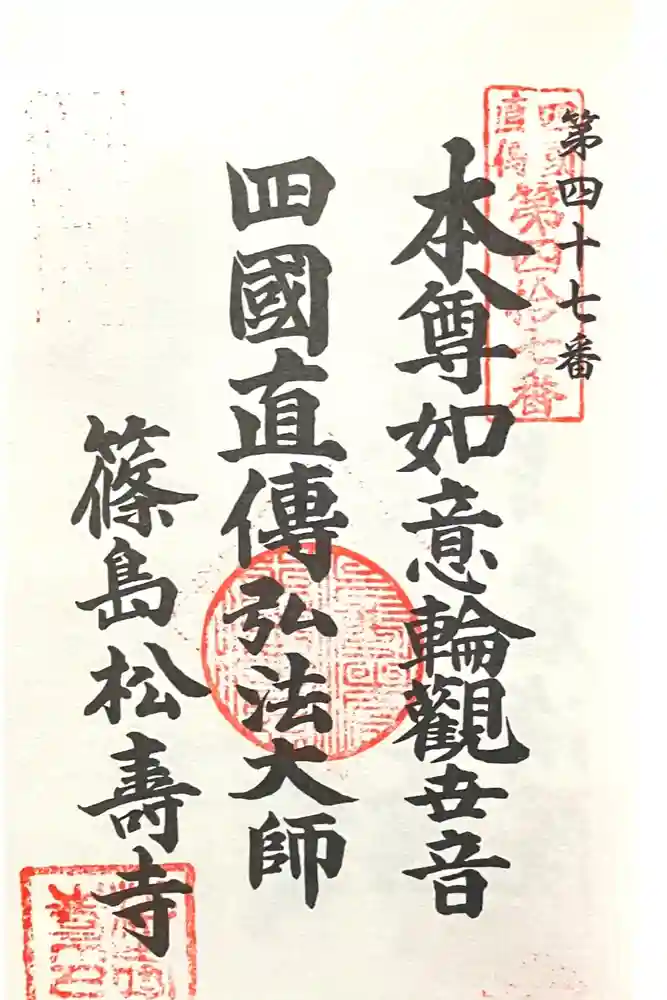 第四十七番
四国
直傳
第四拾七番
本尊如意輪觀世音
四國直傳弘法大師
篠島松壽寺